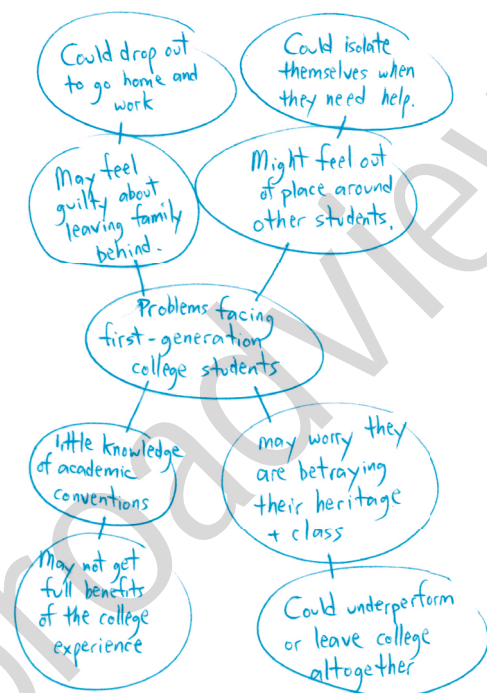 Could drop out
to go home and
work
Could isolate
themselves when
they need help.
May feel
guilty about
leaving family
behind.
Might feel out
of place around
other students.
Problems facing
first-generation
college students
little knowledge
of academic
conventions
may worry they
are betraying
their heritage
+ class
May not get
full benefits
of the college
experience
Could underperform
or leave college
altogether
broadview